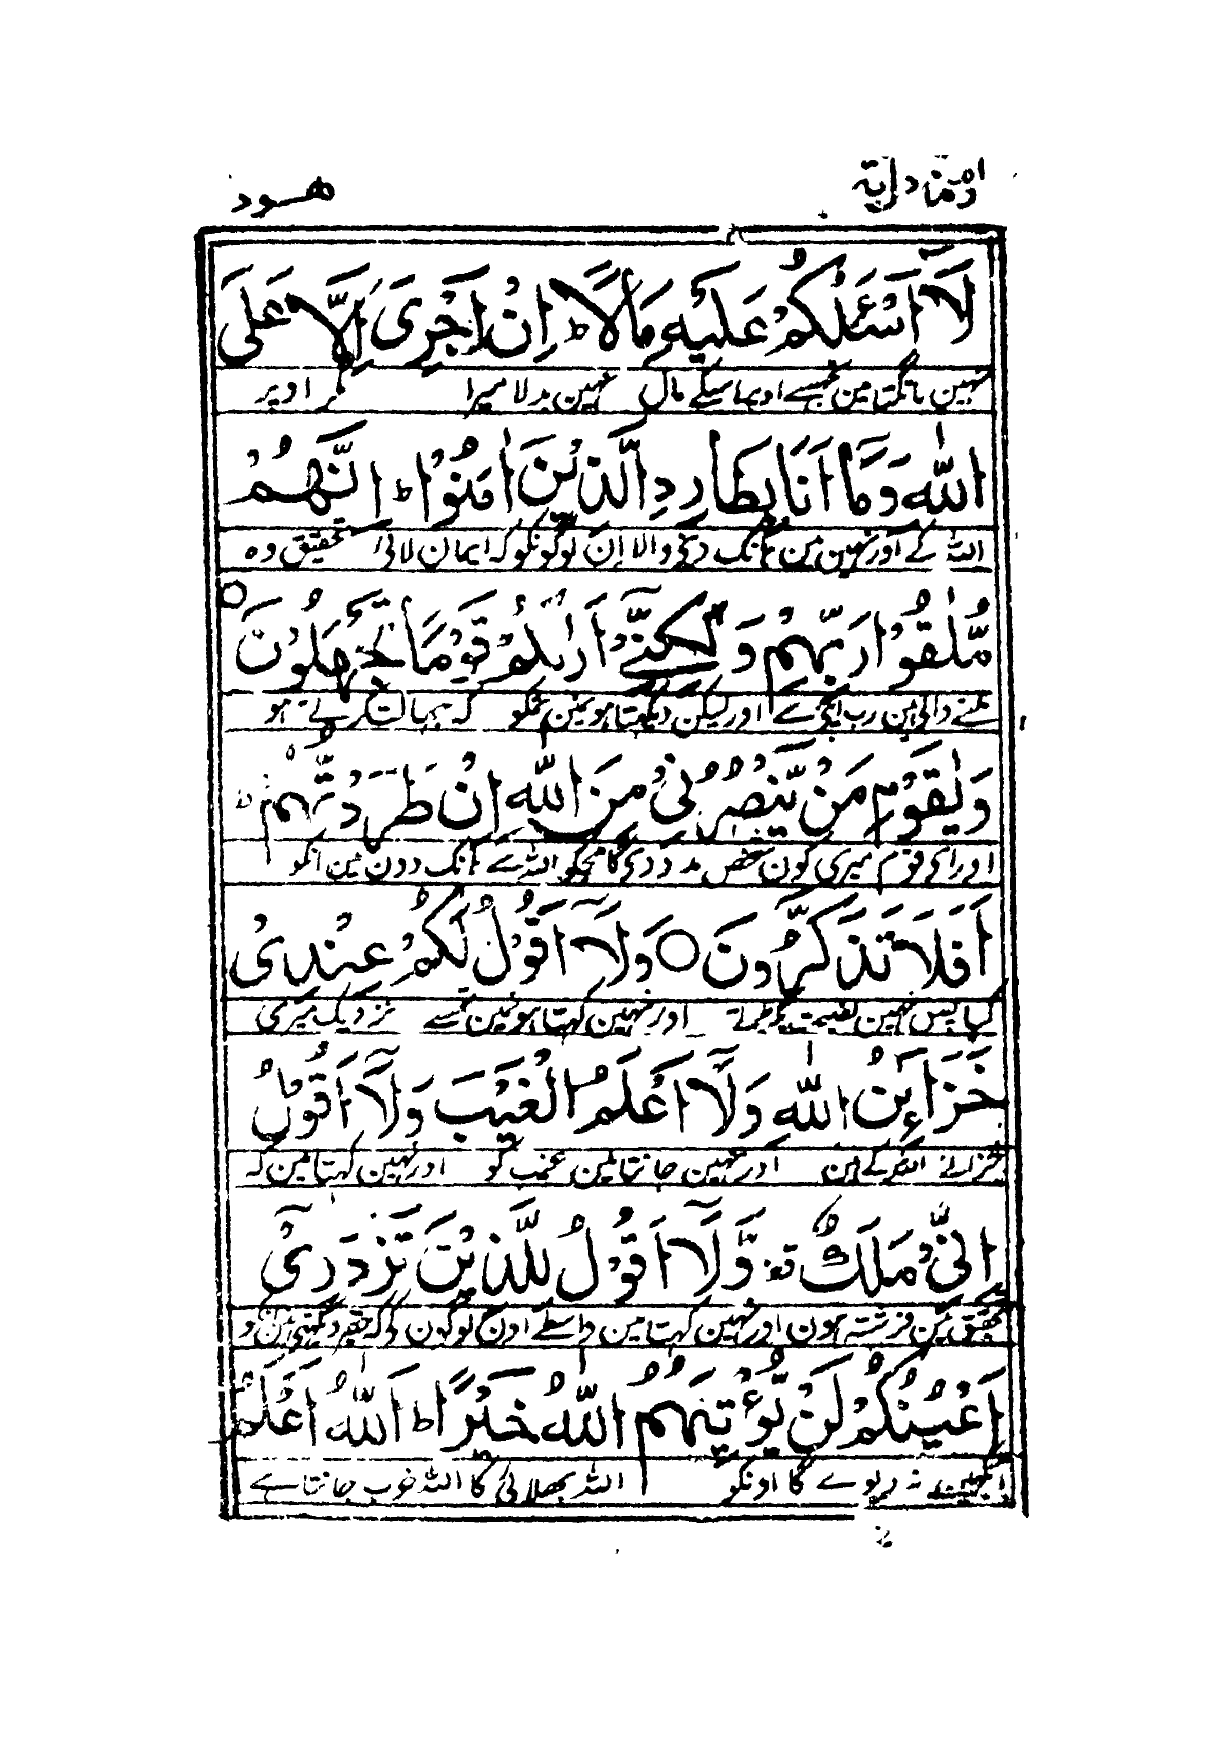 ومامن دآبة هود
لَآ اَسْـَٔلُكُمْ عَلَيْهِ مَالًا ط اِنْ اَجْرِىَ اِلَّا عَلَى
نہین مانگتا مین تمسے اوپر اسکے مال نہین بدلا میرا مگر اوپر
اللّٰهِ وَمَآ اَنَا بِطَارِدِ الَّذِيْنَ اٰمَنُوْا ط اِنَّهُمْ
اللہ کے اور نہین مین ہانک دینے والا ان لوگونکو کہ ایمان لائے تحقیق وہ
مُّلٰقُوْا رَبِّهِمْ وَلٰكِنِّيْٓ اَرٰىكُمْ قَوْمًا تَجْهَلُوْنَ ○
ملنے والے ہین رب اپنے سے اور لیکن دیکھتا ہون مین تمکو کہ جہالت کرتے ہو
وَيٰقَوْمِ مَنْ يَّنْصُرُنِىْ مِنَ اللّٰهِ اِنْ طَرَدْتُّهُمْ ط
اور اے قوم میری کون شخص مدد دے گا مجکو اللہ سے ہانک دون مین انکو
اَفَلَا تَذَكَّرُوْنَ ○ وَلَآ اَقُوْلُ لَكُمْ عِنْدِىْ
کیا پس نہین نصیحت پکڑتے اور نہین کہتا ہون مین تمسے نزدیک میری
خَزَآئِنُ اللّٰهِ وَلَآ اَعْلَمُ الْغَيْبَ وَلَآ اَقُوْلُ
خزانے اللہ کے ہین اور نہین جانتا مین غیب کو اور نہین کہتا مین کہ
اِنِّىْ مَلَكٌ وَّلَآ اَقُوْلُ لِلَّذِيْنَ تَزْدَرِىْٓ
تحقیق مین فرشتہ ہون اور نہین کہتا مین واسطے اون لوگون کے کہ حقیر دیکھتی ہین
اَعْيُنُكُمْ لَنْ يُّؤْتِيَهُمُ اللّٰهُ خَيْرًا ط اَللّٰهُ اَعْلَمُ
آنکھین نہ دیوے گا اونکو اللہ بھلائی کا اللہ خوب جانتا ہے